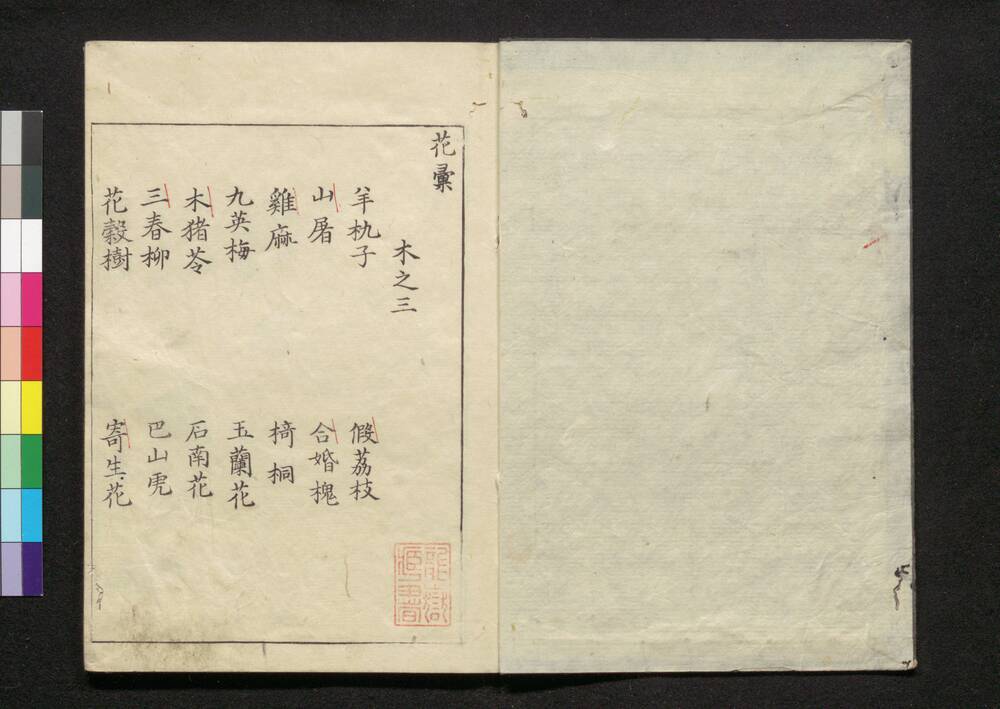 花彙
木之三
羊杭子
假荔枝
山屠
合婚槐
雞麻
椅桐
九英梅
玉蘭花
木猪苓
石南花
三春柳
巴山虎
花穀樹
寄生花
龍嶽
藏書